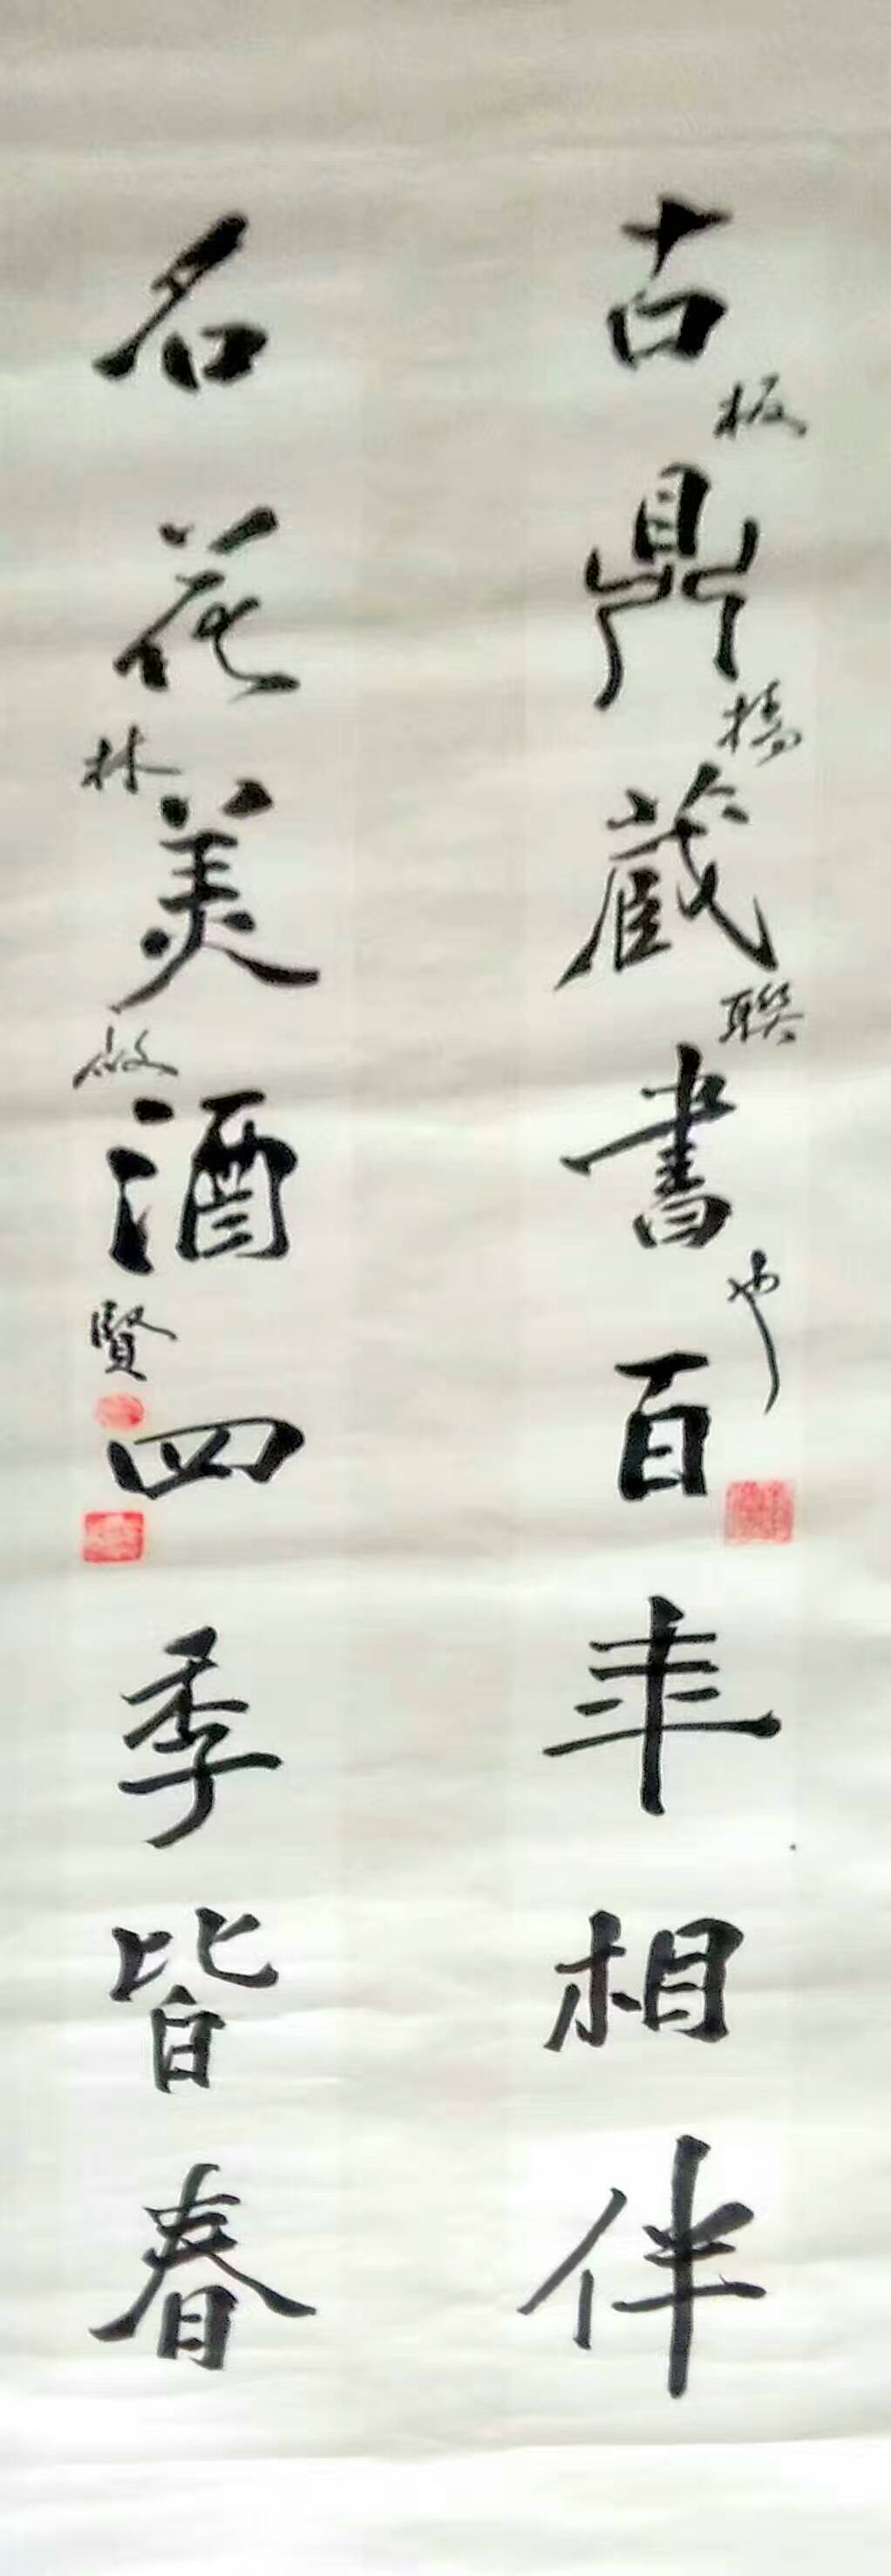 古鼎藏書百年相伴
板橋聯也
名花美酒四季皆春
林啟賢